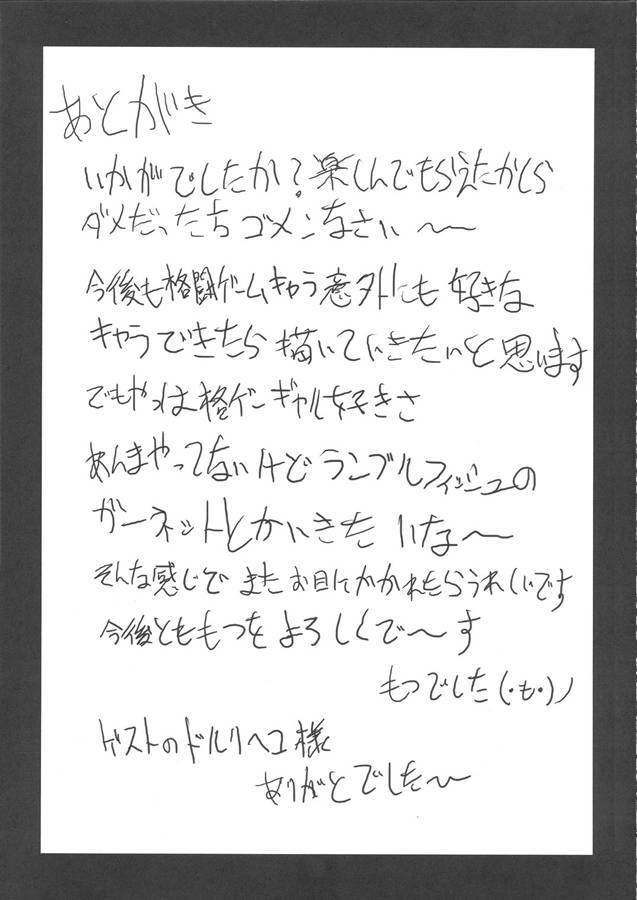 あとがき
いかがでしたか？楽しんでもらえたかしら
ダメだったらゴメンなさい〜
今後も格闘ゲームキャラ意外にも好きな
キャラできたら描いていきたいと思います
でもやっぱ格ゲーギャル好きさ
あんまやってないけどランブルフィッシュの
ガーネットとかいきたいな〜
そんな感じでまたお目にかかれたらうれしいです
今後とももつをよろしくで〜す
もつでした(・も・)ノ
ゲストのドルリヘコ様
ありがとでした〜